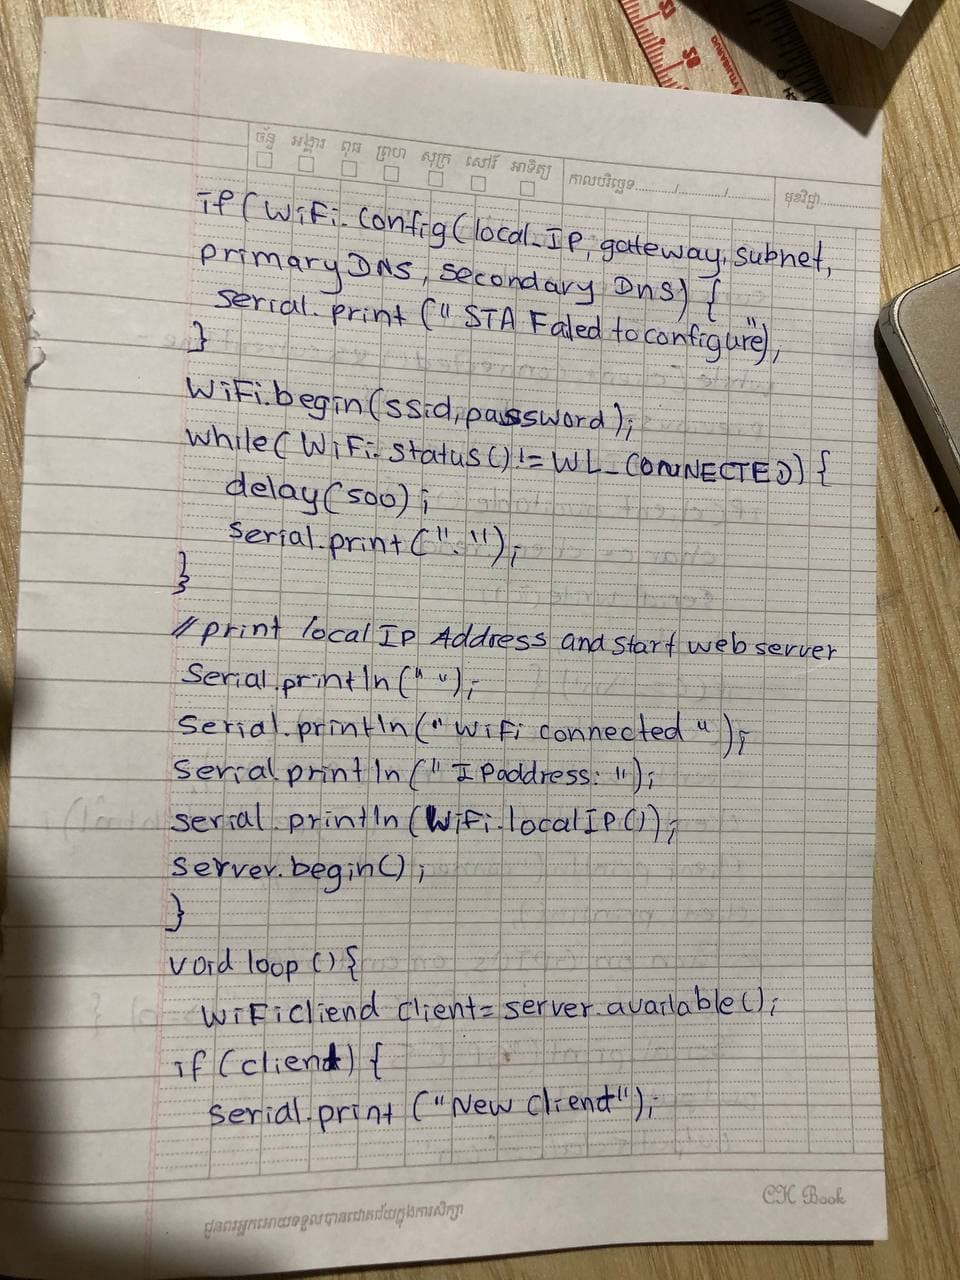 ច័ន្ទ អង្គារ ពុធ ព្រហ សុក្រ សៅរ៍ អាទិត្យ កាលបរិច្ឆេទ............/............/............ មុខវិជ្ជា......
if (WiFi.config(local_IP, gateway, subnet,
primaryDNS, secondary Dns) {
serial.print (" STA Faled to configure"),
}
WiFi.begin(ssid, password);
while( WiFi.status() != WL_CONNECTED) {
delay(500);
serial.print (".");
}
// print local IP Address and start web server
Serial.println (" ");
serial.println (" WiFi connected ");
serial.println (" IPaddress: ");
serial.println (WiFi.localIP());
server.begin();
}
void loop () {
WiFicliend client = server.available();
if (client) {
serial.print ("New Client");
CH Book
ជូនពរអ្នកអោយទទួលបានជោគជ័យក្នុងការសិក្សា